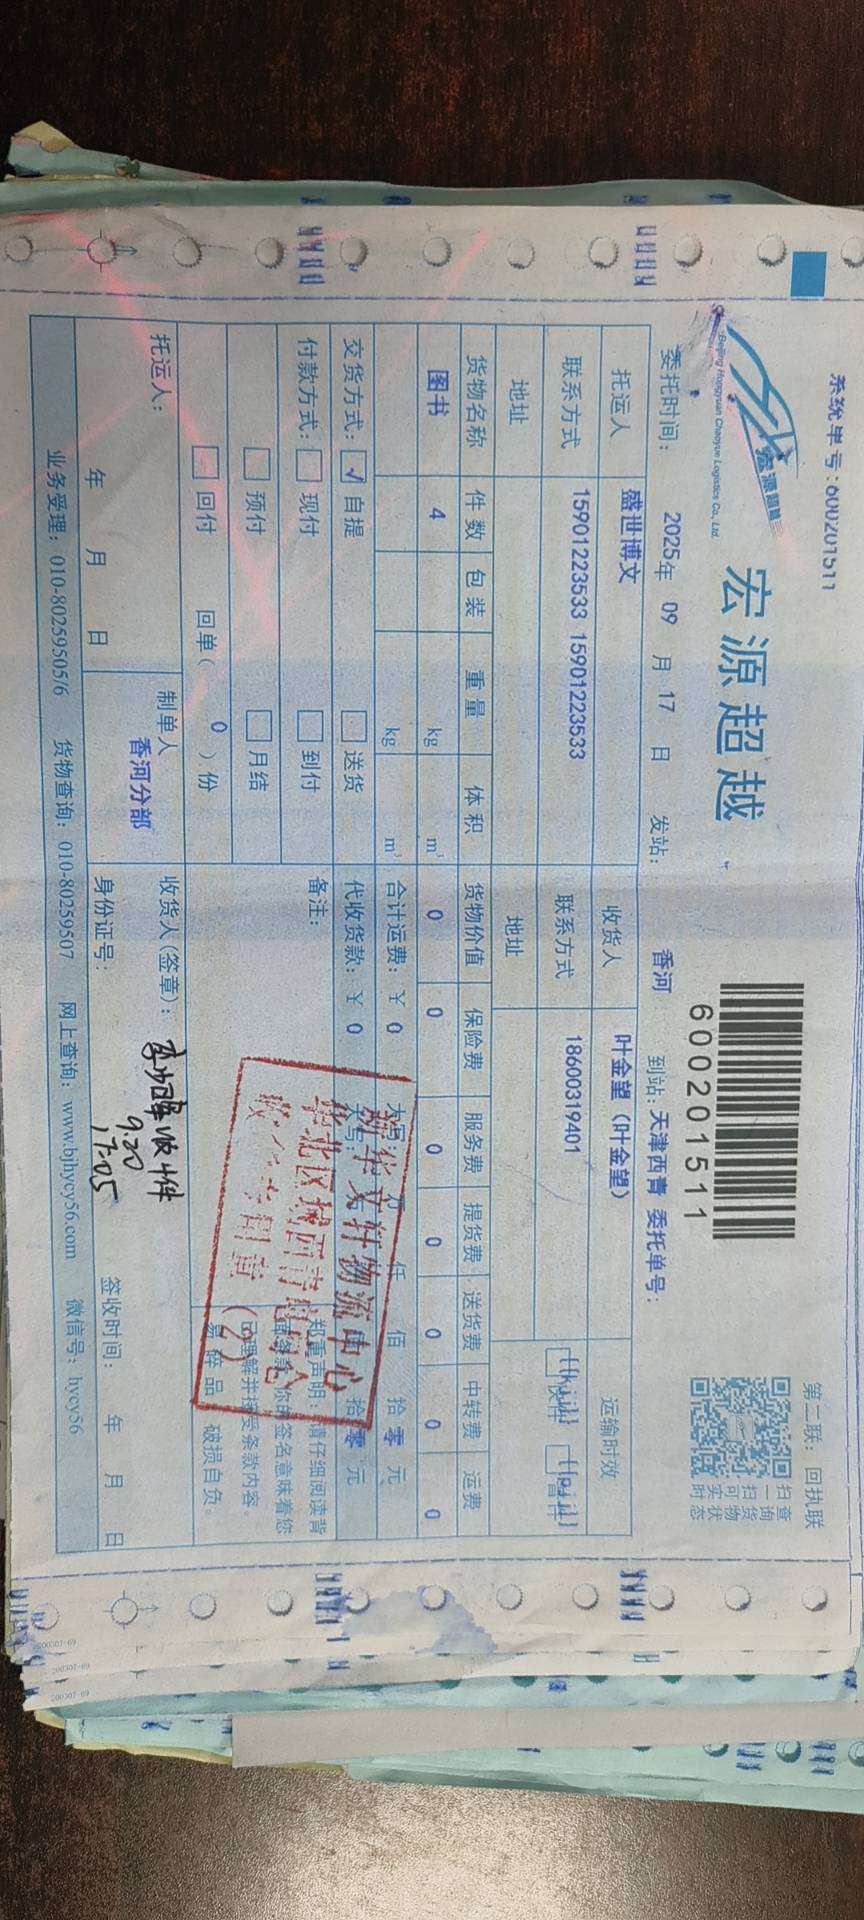 系统单号:600201511
第二联：回执联
宏源超越
Beijing Hongyuan Chaoyue Logistics Co., Ltd.
宏源超越
600201511
扫一扫可实时
查询货物状态
委托时间： 2025年 09 月 17 日 发站： 香河 到站：天津西青 委托单号：
托运人 盛世博文 收货人 叶金望（叶金望） 运输时效
联系方式 15901223533 15901223533 联系方式 18600319401
地址 地址
货物名称 件数 包装 重量 体积 货物价值 保险费 服务费 提货费 送货费 中转费 运费
图书 4 kg m³ 0 0 0 0 0 0 0
kg m³ 合计运费：￥ 0 大写： 万 仟 佰 拾 零 元
交货方式： ✓ 自提 送货 代收货款：￥ 0 拾 零 元
付款方式： 现付 到付 备注：
预付 月结
回付 回单（ 0 ）份
郑重声明：请仔细阅读背
面条款，你的签名意味着您
已理解并接受条款内容。
易碎品 破损自负。
新华文轩物流中心
华北区域西青
收货专用章
(2)
托运人： 制单人 收货人(签章)： 收4件
香河分部 9.20
17:05
年 月 日 身份证号： 签收时间： 年 月 日
业务受理：010-80259505/6 货物查询：010-80259507 网上查询：www.bjhycy56.com 微信号：hycy56
200307-09
200307-09
200307-09